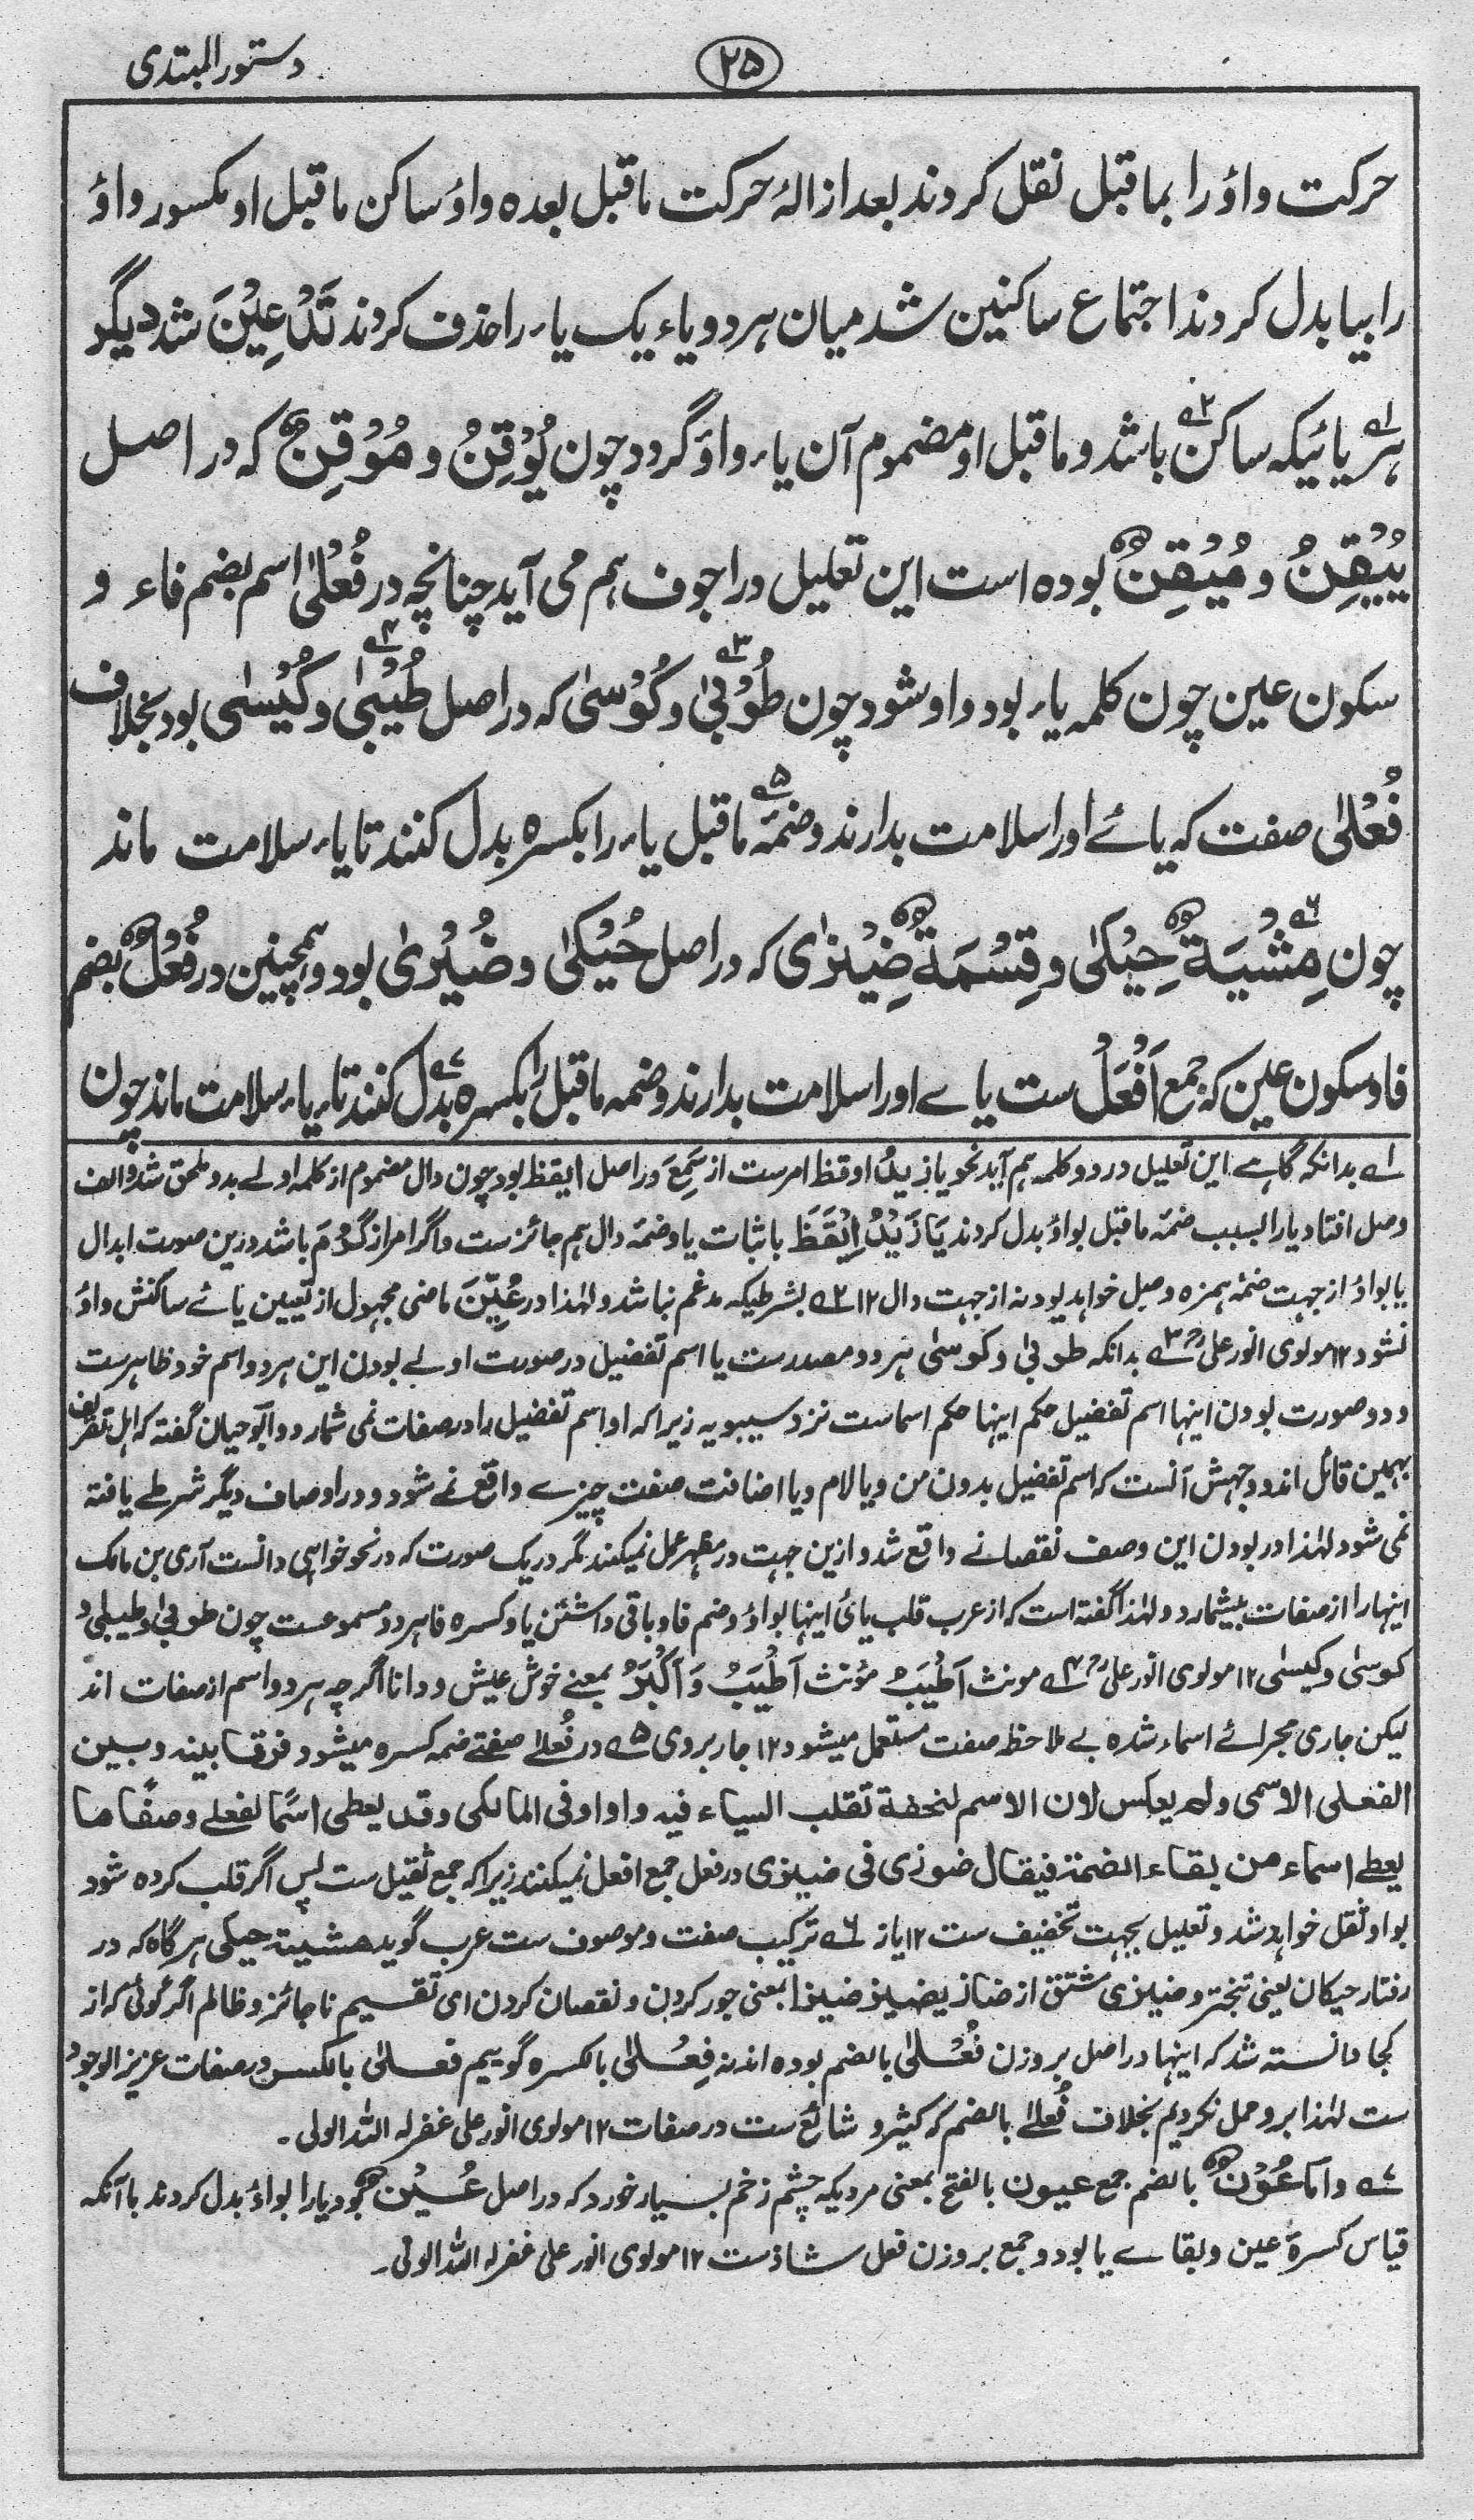 دستور المبتدی
۲۵
حرکت واؤ را بماقبل نقل کردند بعد ازالۂ حرکت ماقبل بعدہ واؤ ساکن ماقبل او مکسور واؤ
را بیا بدل کردند اجتماع ساکنین شد میان ہر دو یاء یک یاء را حذف کردند تَدْعِیْنَ شد دیگر
ہر۱؎ یائیکہ ساکن۲؎ باشد و ماقبل او مضموم آن یاء واؤ گردد چون یُوْقِنُ و مُوْقِنٌ کہ در اصل
یُیْقِنُ و مُیْقِنٌ بودہ است این تعلیل در اجوف ہم می آید چنانچہ در فُعْلٰی اسم بضم فاء و
سکون عین چون کلمہ یاء بود واو شود چون طُوْبٰی۳؎ و کُوْسٰی کہ در اصل طُیْبٰی۴؎ و کُیْسٰی بود بخلاف
فُعْلٰی صفت کہ یائے او را سلامت بدارند و ضمّہ۵؎ ماقبل یاء را بکسرہ بدل کنند تا یاء سلامت ماند
چون مِشْیَةٌ۶؎ حِیْکٰی و قِسْمَةٌ ضِیْزٰی کہ در اصل حُیْکٰی و ضُیْزٰی بود و ہمچنین در فُعْلٌ بضم
فا و سکون عین کہ جمع اَفْعَلُ ست یاے او را سلامت بدارند و ضمہ ماقبل را بکسرہ بدل۷؎ کنند تا یاء سلامت ماند چون
۱؎ بدانکہ گاہے این تعلیل در دو کلمہ ہم آید نحو یا زیدُ اوقظ امرست از سَمِعَ در اصل ایقظ بود چون دال مضموم از کلمہ اولے بدو ملحق شد و الف
وصل افتاد یا را بسبب ضمہ ماقبل بواؤ بدل کردند یَا زَیْدُ اِیْقَظَ باثبات یا و ضمہ دال ہم جائزست و اگر امر از کَرُمَ باشد درین صورت ابدال
یا بواؤ از جہت ضمہ ہمزہ وصل خواہد بود نہ از جہت دال ۱۲ ۲؎ بشرطیکہ مدغم نباشد و لہٰذا در عُیِّنَ ماضی مجہول از تعیین یائے ساکنش واؤ
نشود ۱۲ مولوی انور علی ۳؎ بدانکہ طوبیٰ و کوسیٰ ہر دو مصدرست یا اسم تفضیل در صورت اولے بودن این ہر دو اسم خود ظاہرست
و در صورت بودن اینہا اسم تفضیل حکم اینہا حکم اسماست نزد سیبویہ زیرا کہ او اسم تفضیل را در صفات نمی شمارد و ابو حیان گفتہ کہ اہل تصریف
بہمین قائل اند و وجہش آنست کہ اسم تفضیل بدون من و یا لام و یا اضافت صفت چیزے واقع نے شود و در اوصاف دیگر شرطے یافتہ
نمی شود لہٰذا در بودن این وصف نقصانے واقع شد و ازین جہت در مظہر عمل نمیکند مگر در یک صورت کہ در نحو خواہی دانست آری بن مالک
اینہا را از صفات بیشمارد و لہٰذا گفتہ است کہ از عرب قلب یائ اینہا بواؤ و ضم فا و باقی داشتن یا و کسرہ فا ہر دو مسموعست چون طوبیٰ و طیبیٰ و
کوسیٰ و کیسیٰ ۱۲ مولوی انور علی ۴؎ مونث اَطْیَبُ مؤنث اَطْیَبُ وَ اَکْبَرُ بمعنے خوش عیش و دانا اگر چہ ہر دو اسم از صفات اند
لیکن جاری مجرائے اسماء شدہ بے ملاحظہ صفت مستعمل میشود ۱۲ جاربردی ۵؎ در فُعلے صفتے ضمہ کسرہ میشود فرقا بینہ و بین
الفعلی الاسمی ولم یعکس لان الاسم لخفۃ تقلب الیاء فیہ واوا وفی المالکی وقد یعطی اسمًا لفعلے وصفًا ما
یعطے اسماء من بقاء الضمۃ فیقال ضوزی فی ضیزی در فعل جمع افعل نمیکنند زیرا کہ جمع ثقیل ست پس اگر قلب کردہ شود
بواو ثقل خواہد شد و تعلیل بجہت تخفیف ست ۱۲ یاز ۶؎ ترکیب صفت و موصوف ست عرب گوید مشیۃ حیکی ہر گاہ کہ در
رفتار حیکان یعنی تبختر و ضیزی مشتق از ضاز یضیز ضیزا بمعنی جور کردن و نقصان کردن ای تقسیم ناجائز و ظالم اگر گوئی کہ از
کجا دانستہ شد کہ اینہا در اصل بروزن فُعْلٰی بالضم بودہ اند نہ فِعْلٰی بالکسرہ گوییم فعلی بالکسر در صفات عزیز الوجود
ست لہٰذا برو حمل نکردیم بخلاف فُعلے بالضم کہ کثیر و شائع ست در صفات ۱۲ مولوی انور علی غفرلہ اللہ الولی ۔
۷؎ و اما عُوْنٌ بالضم جمع عیون بالفتح بمعنی مردیکہ چشم زخم بسیار خورد کہ در اصل عُیْنٌ بود یا را بواؤ بدل کردند با آنکہ
قیاس کسرۂ عین و بقاے یا بود و جمع بروزن فعل شاذست ۱۲ مولوی انور علی غفرلہ اللہ الولی ۔